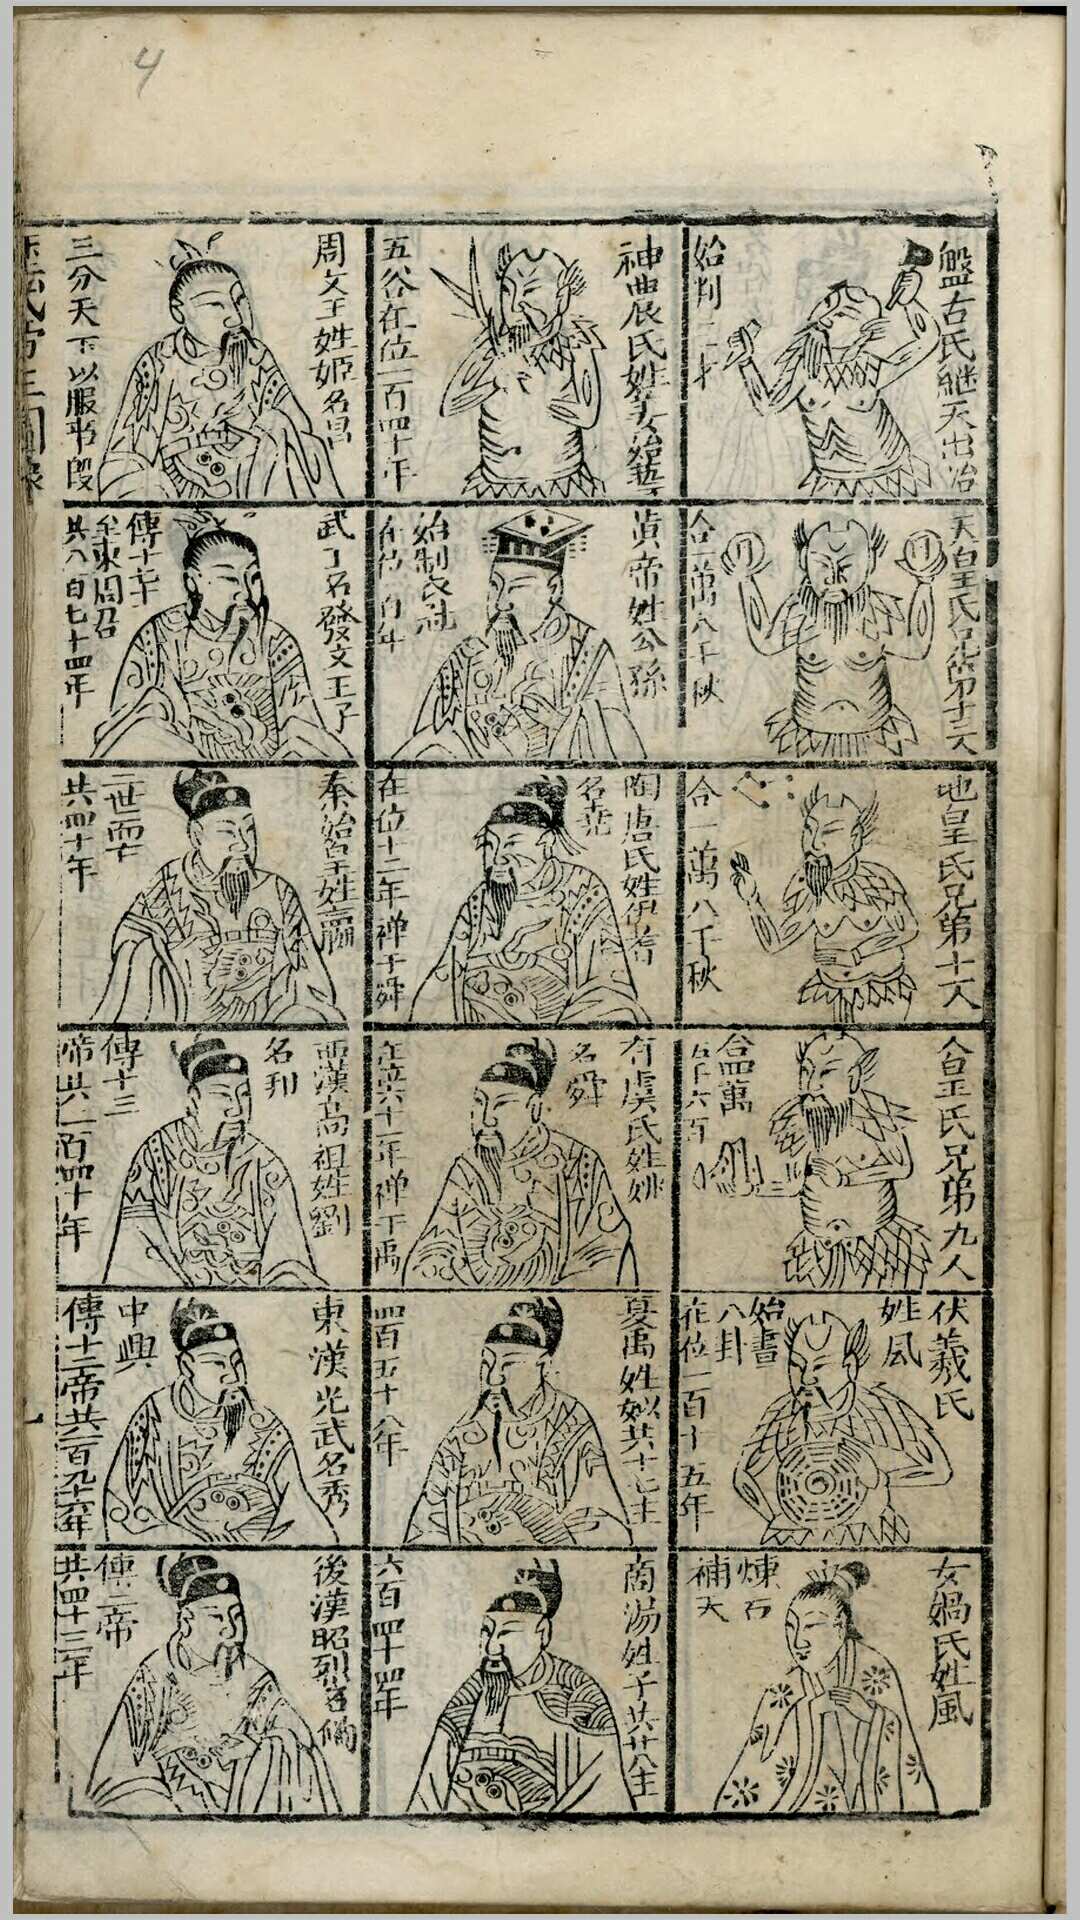 4
盤古氏継天出治
始判二才
天皇氏兄第十三人
合一萬八千秋
地皇氏兄第十一人
合一萬八千秋
人皇氏兄弟九人
合四萬
五千六百
伏羲氏
姓风
始畫
八卦
在位一百十五年
女媧氏姓風
煉石
補天
神農氏姓姜始藝
五谷在位一百四十年
黃帝姓公孫
始制衣冠
在位一百年
陶唐氏姓伊祁
名尭
在位七十二年禅于舜
有虞氏姓姚
名舜
在位六十一年禅于禹
夏禹姓姒共十七主
四百五十八年
商湯姓子共廿八主
六百四十四年
周文王姓姬名昌
三分天下以服事殷
武王名發文王子
傳十
至東周君
共八百七十四年
秦始皇姓嬴
二世而亡
共四十年
西漢高祖姓劉
名邦
傳十三
帝共二百四十年
東漢光武名秀
中興
傳十二帝共一百九十六年
後漢昭烈名備
傳二帝
共四十三年